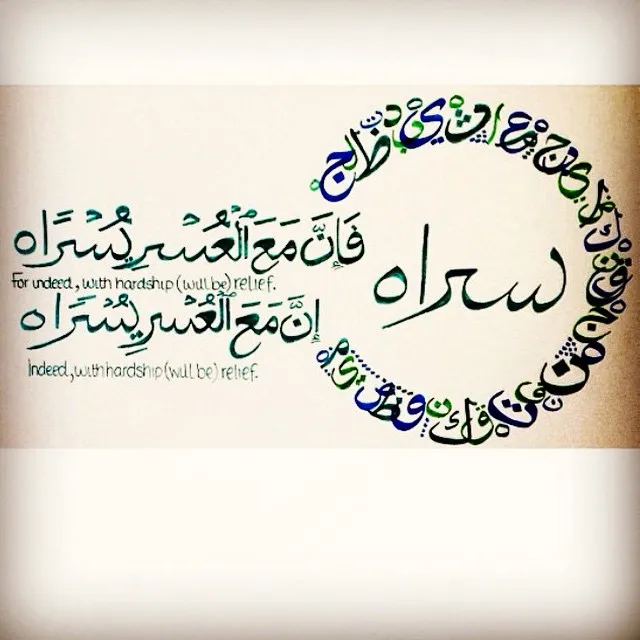 فَإِنَّ مَعَ ٱلْعُسْرِ يُسْرًاه
For indeed, with hardship (will be) relief.
إِنَّ مَعَ ٱلْعُسْرِ يُسْرًاه
Indeed, with hardship (will be) relief.
سراه